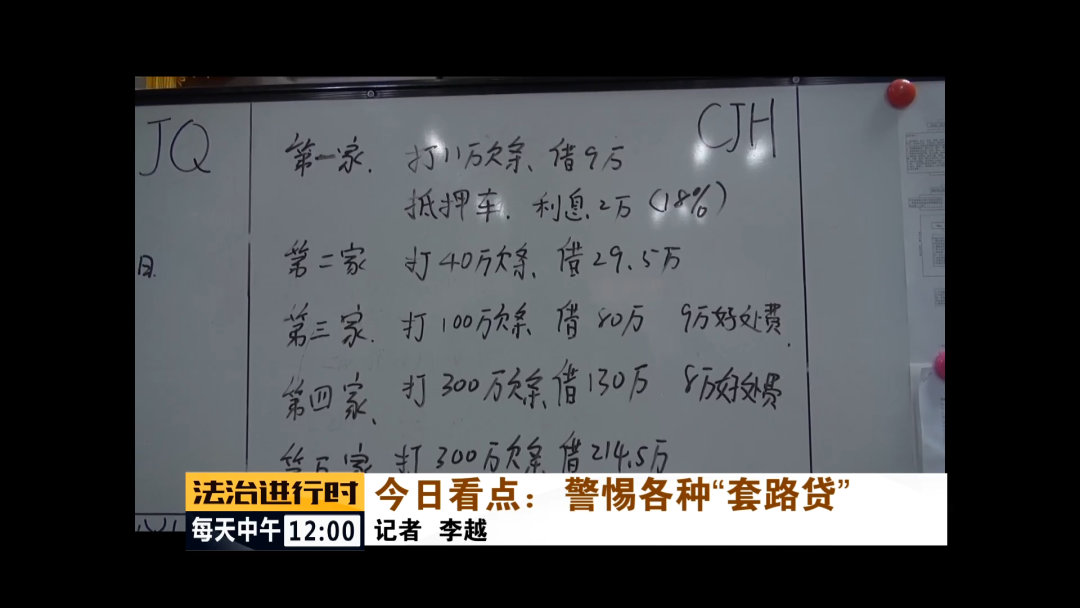 JQ
CJH
第一家. 打11万欠条、借9万
抵押车. 利息2万(18%)
第二家 打40万欠条、借29.5万
日.
第三家. 打100万欠条 借80万 9万好处费.
第四家、打300万欠条、借130万 8万好处费
第五家 打300万欠条 借214.5万
法治进行时
今日看点：警惕各种“套路贷”
每天中午 12:00
记者 李越